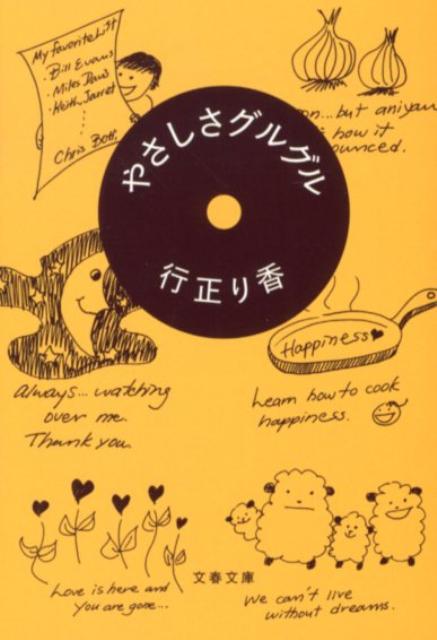 My favorite List
・Bill Evans
・Miles Davis
・Keith Jarret
Chris Bott.
やさしさグルグル
行正り香
on... but aniyan
how it
ounced.
Happiness
Always... watching
over me.
Thank you.
Learn how to cook
happiness.
Love is here and
you are gone...
文春文庫
We can't live
without dreams.